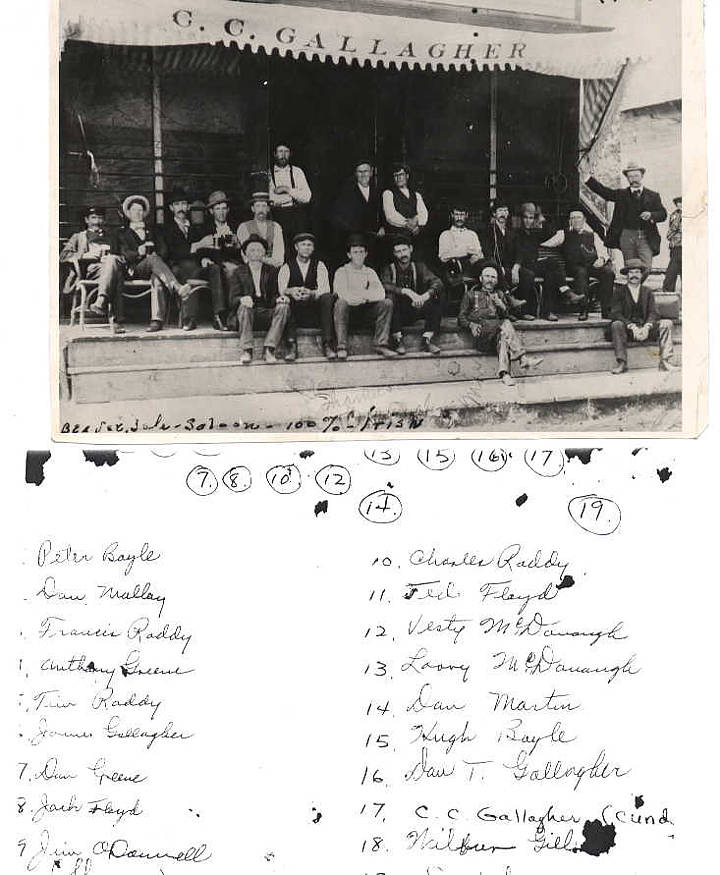 C. C. GALLAGHER
Saloon - 100% - IRISH
13 15 16 17
7. 8. 10 12
14.
19.
Peter Boyle
Dan Mallay
Francis Roddy
Anthony Greene
Tim Roddy
James Gallagher
7. Dan Greene
8. Jack Floyd
9 Jim O'Donnell
10. Charles Roddy
11. Ted Floyd
12. Vesty McDonough
13. McDonough
14. Dan Martin
15. Hugh Boyle
16. Dan T. Gallagher
17. C. C. Gallagher
18. Wilbur